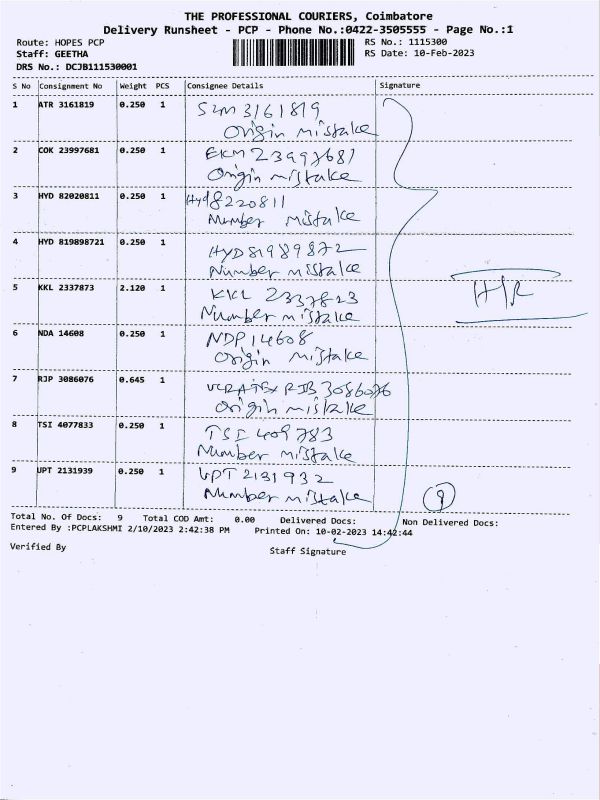 THE PROFESSIONAL COURIERS, Coimbatore
Delivery Runsheet - PCP - Phone No.:0422-3505555 - Page No.:1
Route: HOPES PCP
RS No.: 1115300
Staff: GEETHA
RS Date: 10-Feb-2023
DRS No.: DCJB111530001
S No Consignment No Weight PCS Consignee Details Signature
1 ATR 3161819 0.250 1 SZM 3161819
Origin mistake
2 COK 23997681 0.250 1 EKM 23997681
Origin mistake
3 HYD 82020811 0.250 1 Hyd 8220811
Number mistake
4 HYD 819898721 0.250 1 HYD 81989872
Number mistake
5 KKL 2337873 2.120 1 KKL 2337823
Number mistake
H/R
6 NDA 14608 0.250 1 NDP 14608
Origin mistake
7 RJP 3086076 0.645 1 3086076
Origin mistake
8 TSI 4077833 0.250 1 TSI 409783
Number mistake
9 UPT 2131939 0.250 1 UPT 2131932
Number mistake
9
Total No. Of Docs: 9 Total COD Amt: 0.00 Delivered Docs: Non Delivered Docs:
Entered By :PCPLAKSHMI 2/10/2023 2:42:38 PM Printed On: 10-02-2023 14:42:44
Verified By
Staff Signature